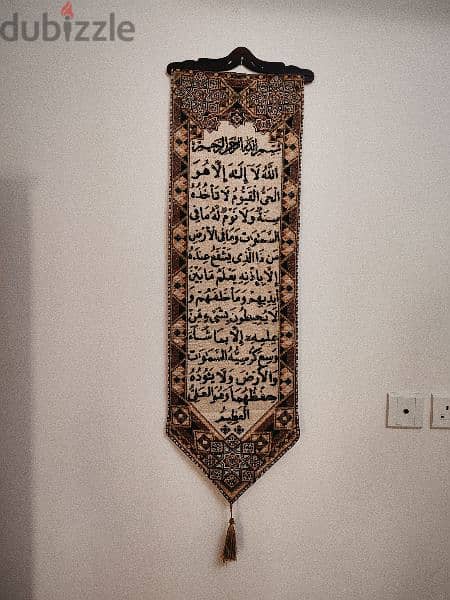 dubizzle
بسم الله الرحمن الرحيم
الله لا إله إلا هو
الحي القيوم لا تأخذه
سنة ولا نوم له ما في
السموات وما في الأرض
من ذا الذي يشفع عنده
إلا بإذنه يعلم ما بين
أيديهم وما خلفهم و
لا يحيطون بشيء من
علمه إلا بما شاء
وسع كرسيه السموات
والأرض ولا يئوده
حفظهما وهو العلي
العظيم